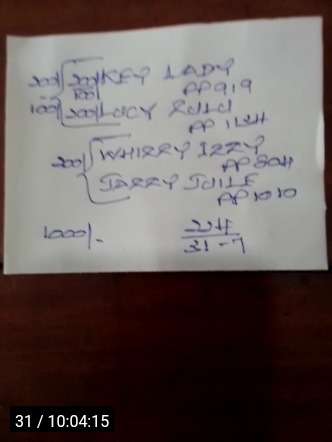 200/ 200/ KEY LADY
100/ PP 919
100/ 200/ LUCY ZULU
PP 1124
200/ WHIZZY IZZY
PP 2024
JAZZY JUILE
PP 1010
1000/-
224
31-7
31 / 10:04:15